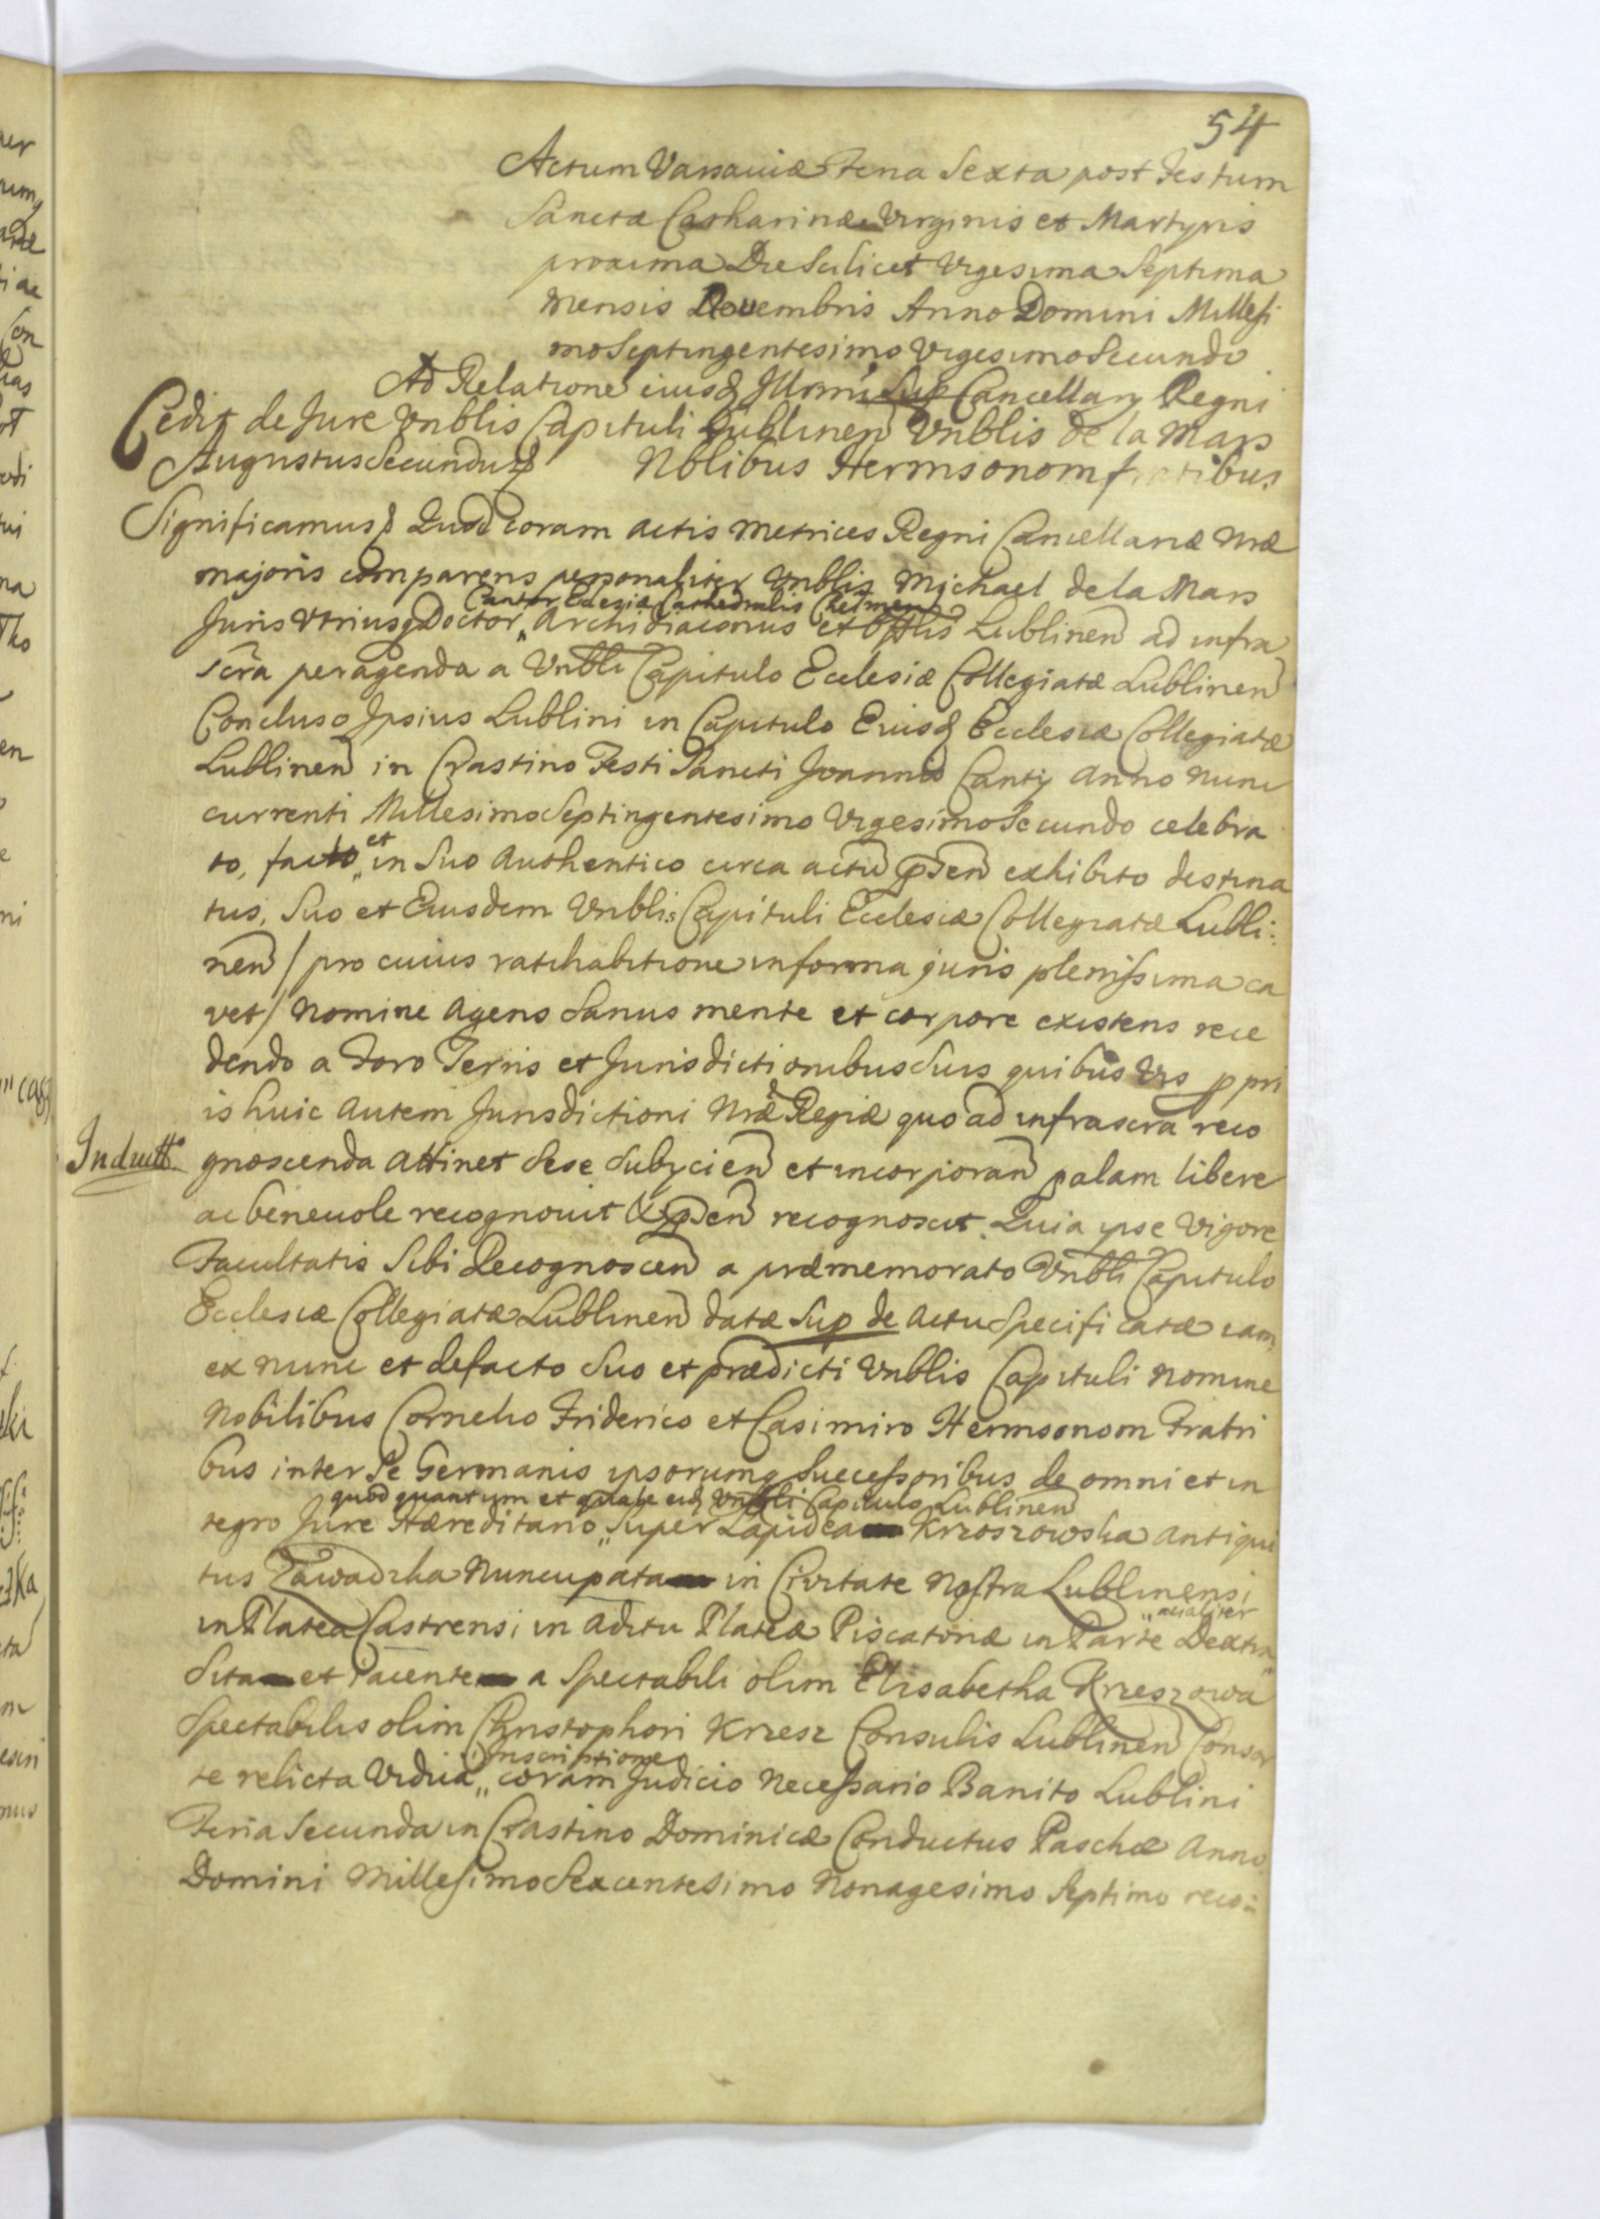 54
Actum Varsaviæ Feria Sexta post Festum
Sanctæ Catharinæ Virginis et Martyris
proxima Die Scilicet Vigesima Septima
Mensis Novembris Anno Domini Millesi
mo Septingentesimo Vigesimo Secundo
Ad Relatione eiusd Illrmi Sup Cancellarij Regni
Cedit de Jure Vnblis Capituli Lublinen Vnblis de la Mars
Augustus Secundus Nblibus Hermsonom fratribus
Significamus Quod coram actis Metrices Regni Cancellariæ Nræ
majoris comparens personaliter Vnblis Michael de la Mars
Cantor Eclesiæ Cathedralis Chelmen
Juris Vtriusq Doctor „ Archidiaconus et Offlis Lublinen ad infra
scra peragenda a Vnbli Capitulo Ecclesiæ Collegiatæ Lublinen
Concluso Ipsius Lublini in Capitulo Eiusd Ecclesiæ Collegiatæ
Lublinen in Crastino Festi Sancti Joannis Cantij Anno Nunc
currenti Millesimo Septingentesimo Vigesimo Secundo celebra
to, facto „ et in Suo Authentico circa actu pnsen exhibito destina
tus, Suo et Eiusdem Vnblis Capituli Ecclesiæ Collegiatæ Lubli:
nen / pro cuius ratihabitione in forma juris plenissima ca
vet / Nomine Agens Sanus mente et corpore existens rece
dendo a Foro Terris et Jurisdictionibus Suis quibusvis ppri
is huic autem Jurisdictioni Nræ Regiæ quo ad infrascra reco
Induct.
gnoscenda attinet Sese Subijcien et incorporan palam libere
ac benevole recognovit & pnsen recognoscit. Quia ipse Vigore
Facultatis Sibi Recognoscen a præmemorato Vnbli Capitulo
Ecclesiæ Collegiatæ Lublinen datæ Sup de Actu Specificatæ iam
ex nunc et defacto Suo et prædicti Vnblis Capituli Nomine
Nobilibus Cornelio Friderico et Casimiro Hermsonom Fratri
bus inter Se Germanis ipsorumq Successoribus de omni et in
quod quantum et quale eid Vnbli Capitulo Lublinen
tegro Jure Hæreditario „ Super Lapidea Krzoszowska antiqui
tus Zawadzka Nuncupata in Civitate Nostra Lublinensi
in Platea Castrensi in aditu Plateæ Piscatoriæ in Parte Dextra „ acialiter
Sita et iacente a Spectabili olim Elisabetha Krzeszowa
Spectabilis olim Christophori Krzesz Consulis Lublinen Consor
te relicta Vidua „ Inscriptione coram Judicio Necessario Banito Lublini
Feria Secunda in Crastino Dominicæ Conductus Paschæ Anno
Domini Millesimo Sexcentesimo Nonagesimo Septimo reco: